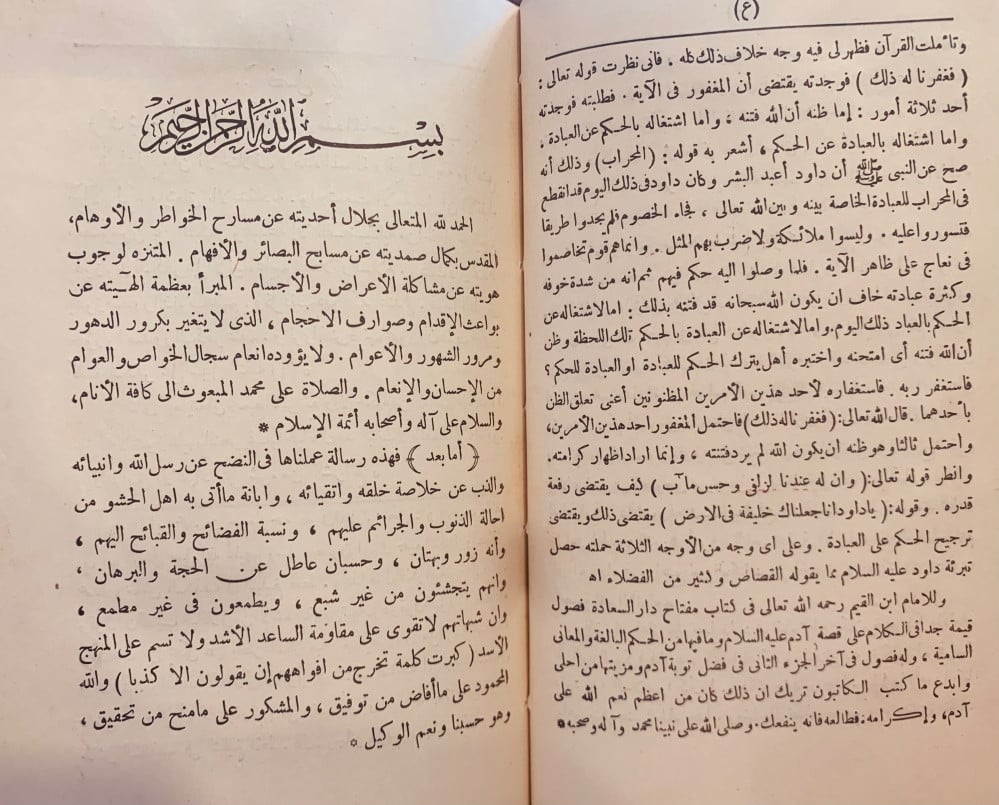 (ع)
وتأملت القرآن فظهر لى فيه وجه خلاف ذلك كله ، فانى نظرت قوله تعالى :
( فغفرنا له ذلك ) فوجدته يقتضى أن المغفور فى الآية . فطلبته فوجدته
أحد ثلاثة أمور : إما ظنه أن الله فتنه ، واما اشتغاله بالحكم عن العبادة ،
واما اشتغاله بالعبادة عن الحكم ، أشعر به قوله : (المحراب) وذلك أنه
صح عن النبى ﷺ أن داود أعبد البشر وكان داود فى ذلك اليوم قد انقطع
فى المحراب للعبادة الخاصة بينه وبين الله تعالى ، فجاء الخصوم فلم يجدوا طريقا
فتسوروا عليه . وليسوا ملائكة ولا ضرب بهم المثل . وانما هم قوم تخاصموا
فى نعاج على ظاهر الآية . فلما وصلوا اليه حكم فيهم ثم انه من شدة خوفه
وكثرة عبادته خاف ان يكون الله سبحانه قد فتنه بذلك : اما لاشتغاله عن
الحكم بالعباد ذلك اليوم. واما لاشتغاله عن العبادة بالحكم تلك اللحظة وظن
أن الله فتنه أى امتحنه واختبره أهل يترك الحكم للعبادة او العبادة للحكم ؟
فاستغفر ربه . فاستغفاره لأحد هذين الأمرين المظنونين أعنى تعلق الظن
بأحدهما . قال الله تعالى : (فغفرنا له ذلك) فاحتمل المغفور احد هذين الأمرين،
واحتمل ثالثا وهو ظنه ان يكون الله لم يرد فتنته ، وإنما اراد اظهار كرامته.
وانظر قوله تعالى: ( وان له عندنا لزلفى وحسن مآب ) كيف يقتضى رفعة
قدره . وقوله: ( ياداود انا جعلناك خليفة فى الارض ) يقتضى ذلك ويقتضى
ترجيح الحكم على العبادة . وعلى اى وجه من الأوجه الثلاثة حملته حصل
تبرئة داود عليه السلام مما يقوله القصاص وكثير من الفضلاء اه
وللامام ابن القيم رحمه الله تعالى فى كتاب مفتاح دار السعادة فصول
قيمة جدا فى الكلام على قصة آدم عليه السلام وما فيها من الحكم البالغة والمعانى
السامية ، وله فصول فى آخر الجزء الثانى فى فضل توبة آدم ومزيتها من احلى
وابدع ما كتب الكاتبون تريك ان ذلك كان من اعظم نعم الله على
آدم، وإكرامه: فطالعه فانه ينفعك. وصلى الله على نبينا محمد وآله وصحبه *
بسم الله الرحمن الرحيم
الحمد لله المتعالى بجلال أحديته عن مسارح الخواطر والأوهام،
المقدس بكمال صمديته عن مسابح البصائر والأفهام . المتنزه لوجوب
هويته عن مشاكلة الأعراض والأجسام . المبرأ بعظمة الهيته عن
بواعث الإقدام وصوارف الاحجام ، الذى لا يتغير بكرور الدهور
ومرور الشهور والأعوام . ولا يؤوده انعام سجال الخواص والعوام
من الإحسان والإنعام . والصلاة على محمد المبعوث الى كافة الأنام،
والسلام على آله وأصحابه أئمة الإسلام *
( أما بعد ) فهذه رسالة عملناها فى النضح عن رسل الله وانبيائه
والذب عن خلاصة خلقه واتقيائه ، وابانة ما أتى به اهل الحشو من
احالة الذنوب والجرائم عليهم ، ونسبة الفضائح والقبائح اليهم ،
وأنه زور وبهتان ، وحسبان عاطل عن الحجة والبرهان ،
وانهم يتجشئون من غير شبع ، ويطمعون فى غير مطمع ،
وان شبهاتهم لا تقوى على مقاومة الساعد الأشد ولا تسم على المنهج
الأسد ( كبرت كلمة تخرج من افواههم إن يقولون الا كذبا ) والله
المحمود على ما أفاض من توفيق ، والمشكور على ما منح من تحقيق ،
وهو حسبنا ونعم الوكيل *